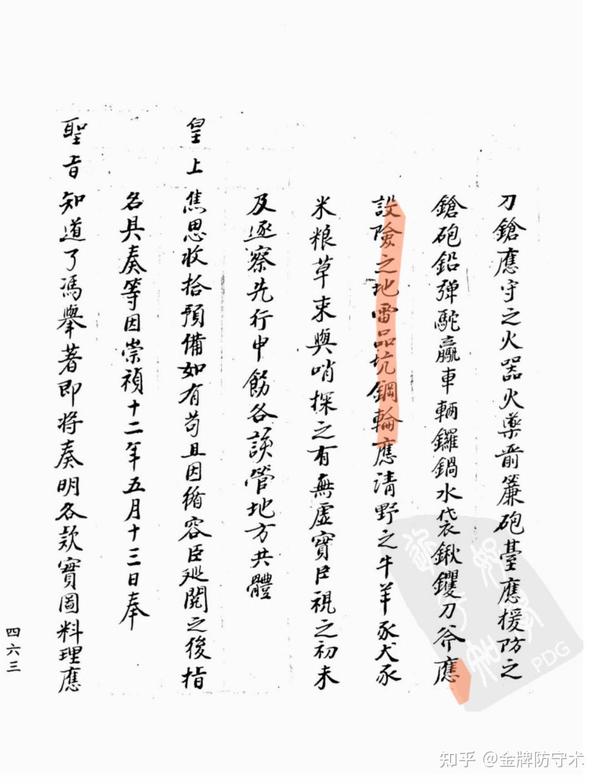 刀鎗應守之火器火藥葥簾砲臺應援防之
鎗砲鉛弹駝驘車輛鑼鍋水袋鍬钁刀斧應
設險之地雷品坑鋼輪應清野之牛羊豕犬豕
米粮草束與哨探之有無虛實臣視之初未
及逐察先行申飭各該管地方共體
皇上焦思收拾預備如有苟且因循容臣廵閱之後指
名具奏等因崇禎十二年五月十三日奉
聖旨知道了馮舉著即將奏明各款實圖料理應
四六三
PDG
知乎 @金牌防守术